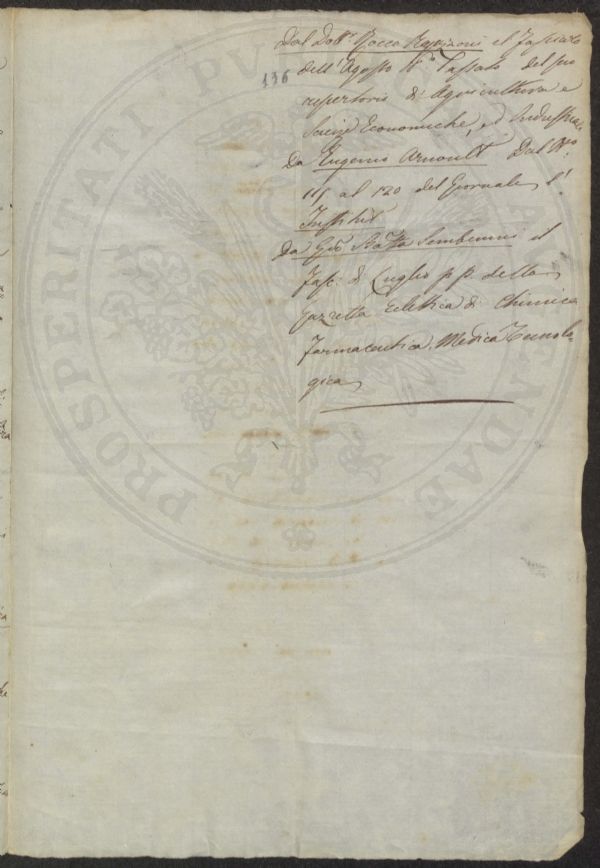 Dal Dott.r Rocco Ragazzoni il Fascicolo
136
dell'Agosto p.o passato del suo
repertorio di Agricoltura e
Scienze Economiche, ed Industriali
Da Eugenio Arnoult Dal N.o
115 al 120 del Giornale l'
Institut
Da Gio Batta Sembenini il
Fasc. di Luglio p.p. della
Gazzetta Eclettica di Chimica
Farmaceutica. Medica Tecnolo-
gica
PROSPERITATI PUBLICAE AUGENDAE